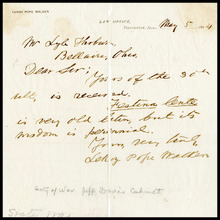 LEROY POPE WALKER
LAW OFFICE
May 5
Mr Lyle
Bellaire, Ohio,
Dear Sir; Yours of the 30th
ult. is received. Festina lente
is very old Latin, but its
wisdom is perennial.
Yours very truly
Leroy Pope Walker
Secty of War Jeff Davis's Cabinet